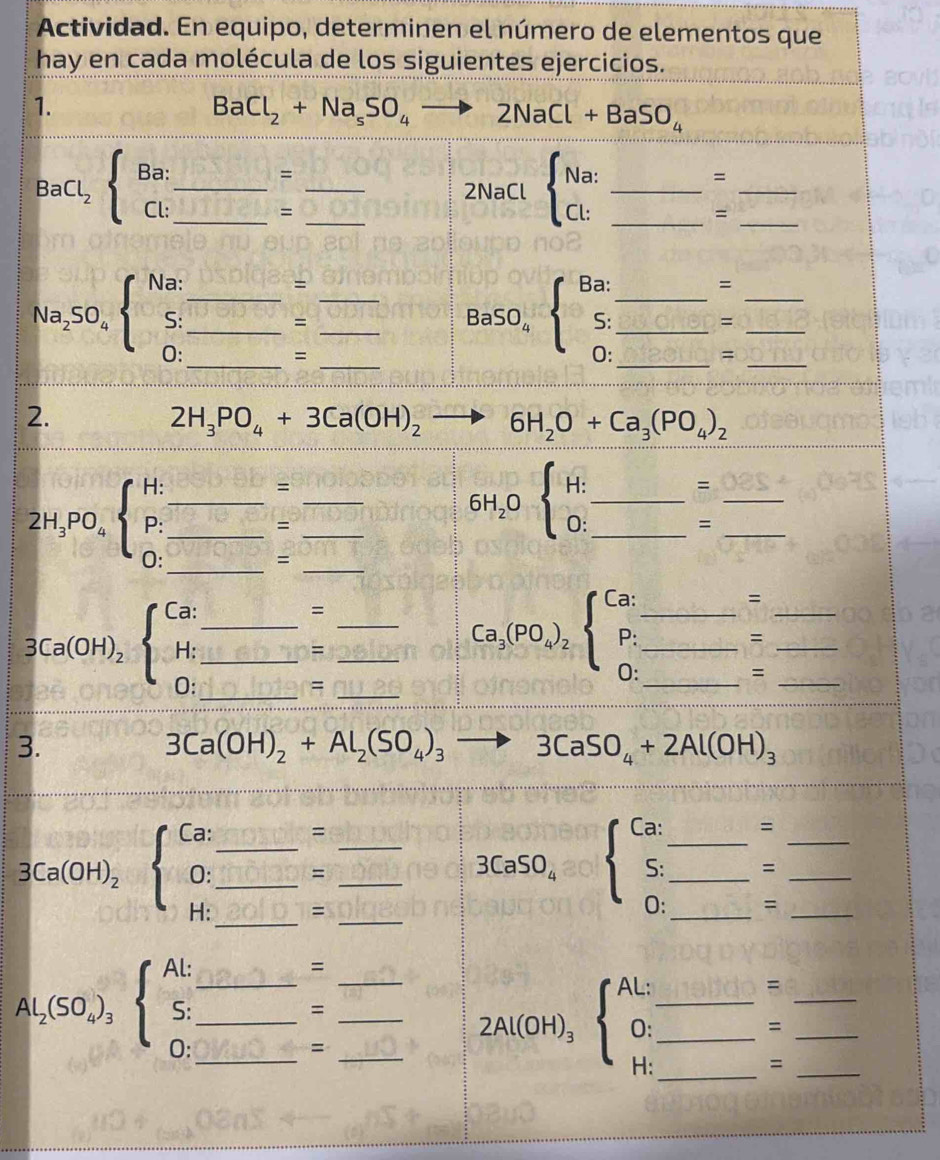 Actividad. En equipo, determinen el número de elementos que
hay en cada molécula de los siguientes ejercicios.
1. BaCl₂ + NaₛSO₄ → 2NaCl + BaSO₄
BaCl₂ { Ba: ____ = ____
Cl: ____ = ____
2NaCl { Na: ____ = ____
Cl: ____ = ____
Na₂SO₄ { Na: ____ = ____
S: ____ = ____
O: ____ = ____
BaSO₄ { Ba: ____ = ____
S: ____ = ____
O: ____ = ____
2. 2H₃PO₄ + 3Ca(OH)₂ → 6H₂O + Ca₃(PO₄)₂
2H₃PO₄ { H: ____ = ____
P: ____ = ____
O: ____ = ____
6H₂O { H: ____ = ____
O: ____ = ____
3Ca(OH)₂ { Ca: ____ = ____
H: ____ = ____
O: ____ = ____
Ca₃(PO₄)₂ { Ca: ____ = ____
P: ____ = ____
O: ____ = ____
3. 3Ca(OH)₂ + Al₂(SO₄)₃ → 3CaSO₄ + 2Al(OH)₃
3Ca(OH)₂ { Ca: ____ = ____
O: ____ = ____
H: ____ = ____
3CaSO₄ { Ca: ____ = ____
S: ____ = ____
O: ____ = ____
AL₂(SO₄)₃ { Al: ____ = ____
S: ____ = ____
O: ____ = ____
2Al(OH)₃ { AL: ____ = ____
O: ____ = ____
H: ____ = ____